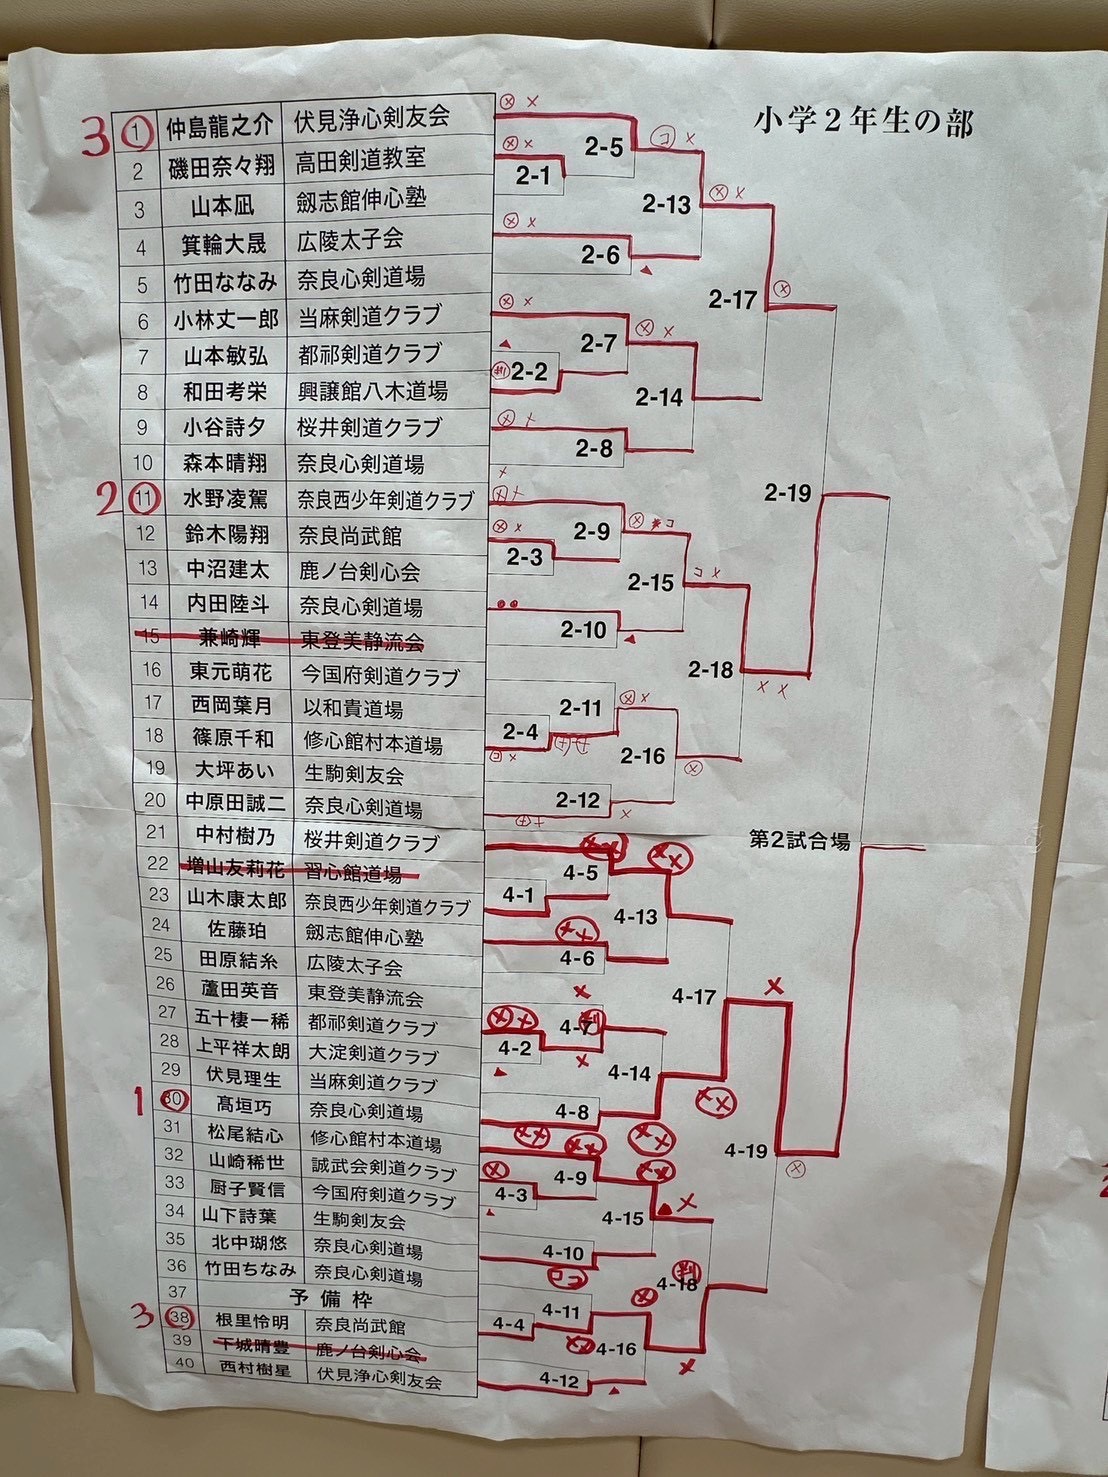 小学2年生の部
3 1 仲島龍之介 伏見浄心剣友会
2 磯田奈々翔 高田剣道教室
3 山本凪 劔志館伸心塾
4 箕輪大晟 広陵太子会
5 竹田ななみ 奈良心剣道場
6 小林丈一郎 当麻剣道クラブ
7 山本敏弘 都祁剣道クラブ
8 和田考栄 興譲館八木道場
9 小谷詩夕 桜井剣道クラブ
10 森本晴翔 奈良心剣道場
2 11 水野凌駕 奈良西少年剣道クラブ
12 鈴木陽翔 奈良尚武館
13 中沼建太 鹿ノ台剣心会
14 内田陸斗 奈良心剣道場
15 兼崎輝 東登美静流会
16 東元萌花 今国府剣道クラブ
17 西岡葉月 以和貴道場
18 篠原千和 修心館村本道場
19 大坪あい 生駒剣友会
20 中原田誠二 奈良心剣道場
21 中村樹乃 桜井剣道クラブ
22 増山友莉花 習心館道場
23 山木康太郎 奈良西少年剣道クラブ
24 佐藤珀 劔志館伸心塾
25 田原結糸 広陵太子会
26 蘆田英音 東登美静流会
27 五十棲一稀 都祁剣道クラブ
28 上平祥太朗 大淀剣道クラブ
29 伏見理生 当麻剣道クラブ
1 30 髙垣巧 奈良心剣道場
31 松尾結心 修心館村本道場
32 山崎稀世 誠武会剣道クラブ
33 厨子賢信 今国府剣道クラブ
34 山下詩葉 生駒剣友会
35 北中瑚悠 奈良心剣道場
36 竹田ちなみ 奈良心剣道場
37 予備枠
3 38 根里怜明 奈良尚武館
39 下城晴豊 鹿ノ台剣心会
40 西村樹星 伏見浄心剣友会
2-1
2-2
2-3
2-4
2-5
2-6
2-7
2-8
2-9
2-10
2-11
2-12
2-13
2-14
2-15
2-16
2-17
2-18
2-19
第2試合場
4-1
4-2
4-3
4-4
4-5
4-6
4-7
4-8
4-9
4-10
4-11
4-12
4-13
4-14
4-15
4-16
4-17
4-18
4-19